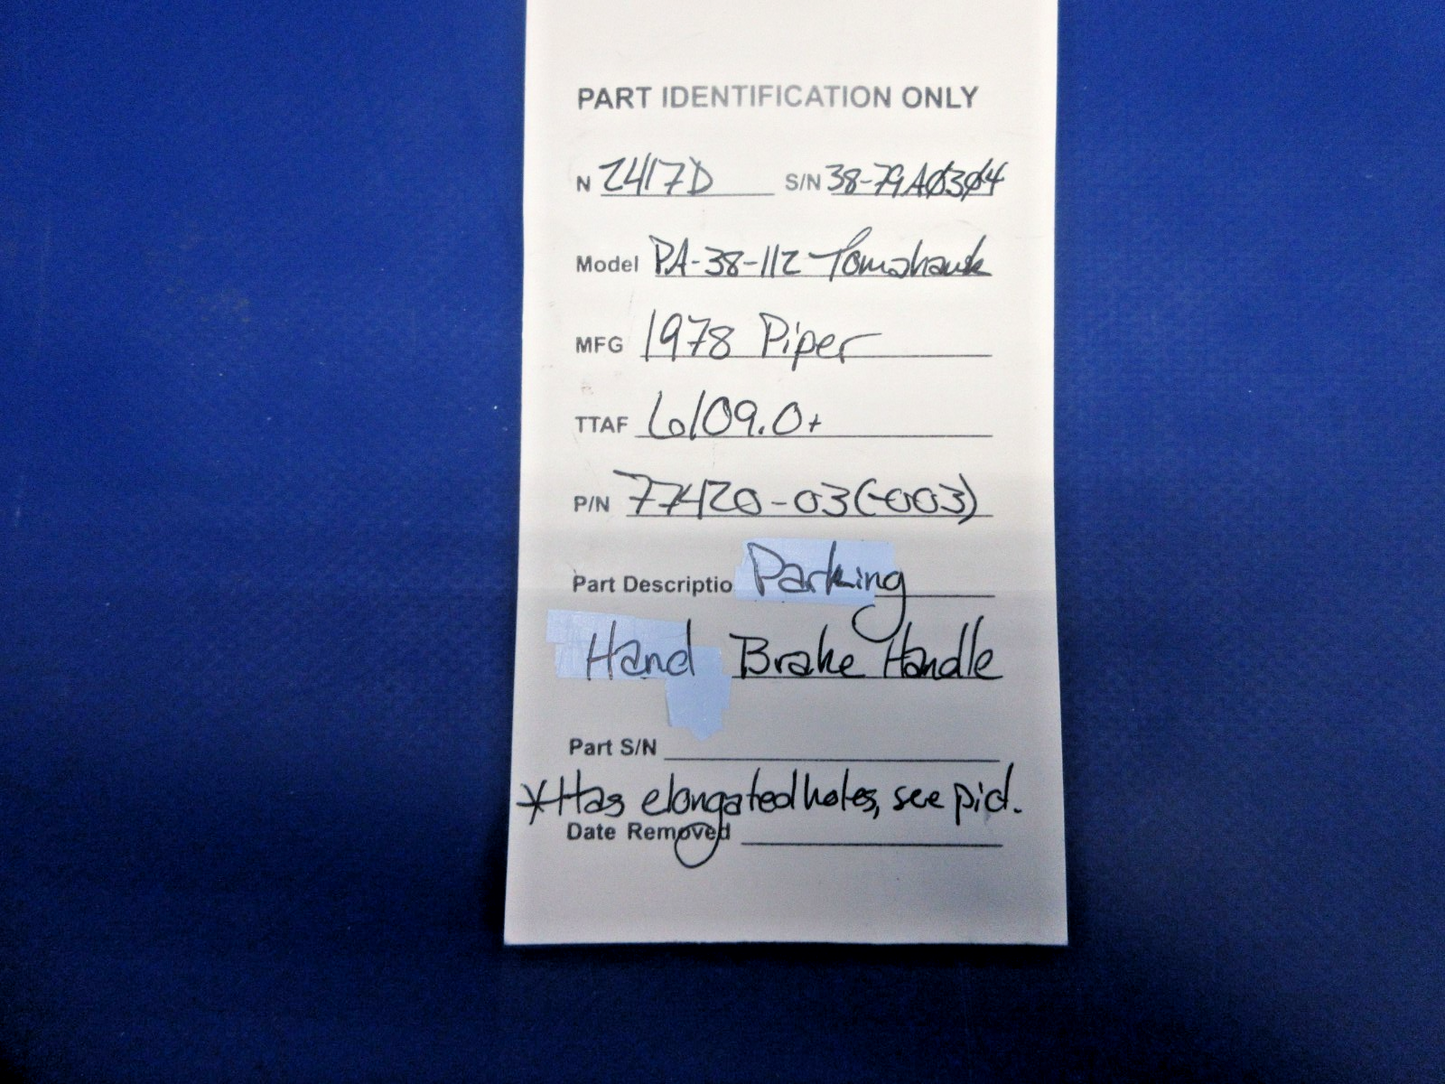 PART IDENTIFICATION ONLY
N 2417D S/N 38-79AØ3Ø4
Model PA-38-112 Tomahawk
MFG 1978 Piper
TTAF 6109.0+
P/N 77420-03(-003)
Part Descriptio Parking
Hand Brake Handle
Part S/N
*Has elongated holes, see pic.
Date Removed